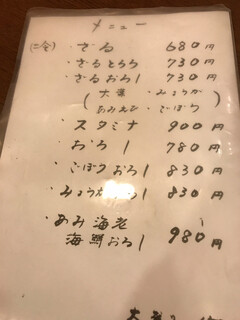 メニュー
・ざる 680円
・ざるとろろ 730円
・ざるおろし 730円
(大葉・みょうが
あみえび・ごぼう)
・スタミナ 900円
・おろし 780円
・ごぼうおろし 830円
・みょうがおろし 830円
・あみ海老
海鮮おろし 980円